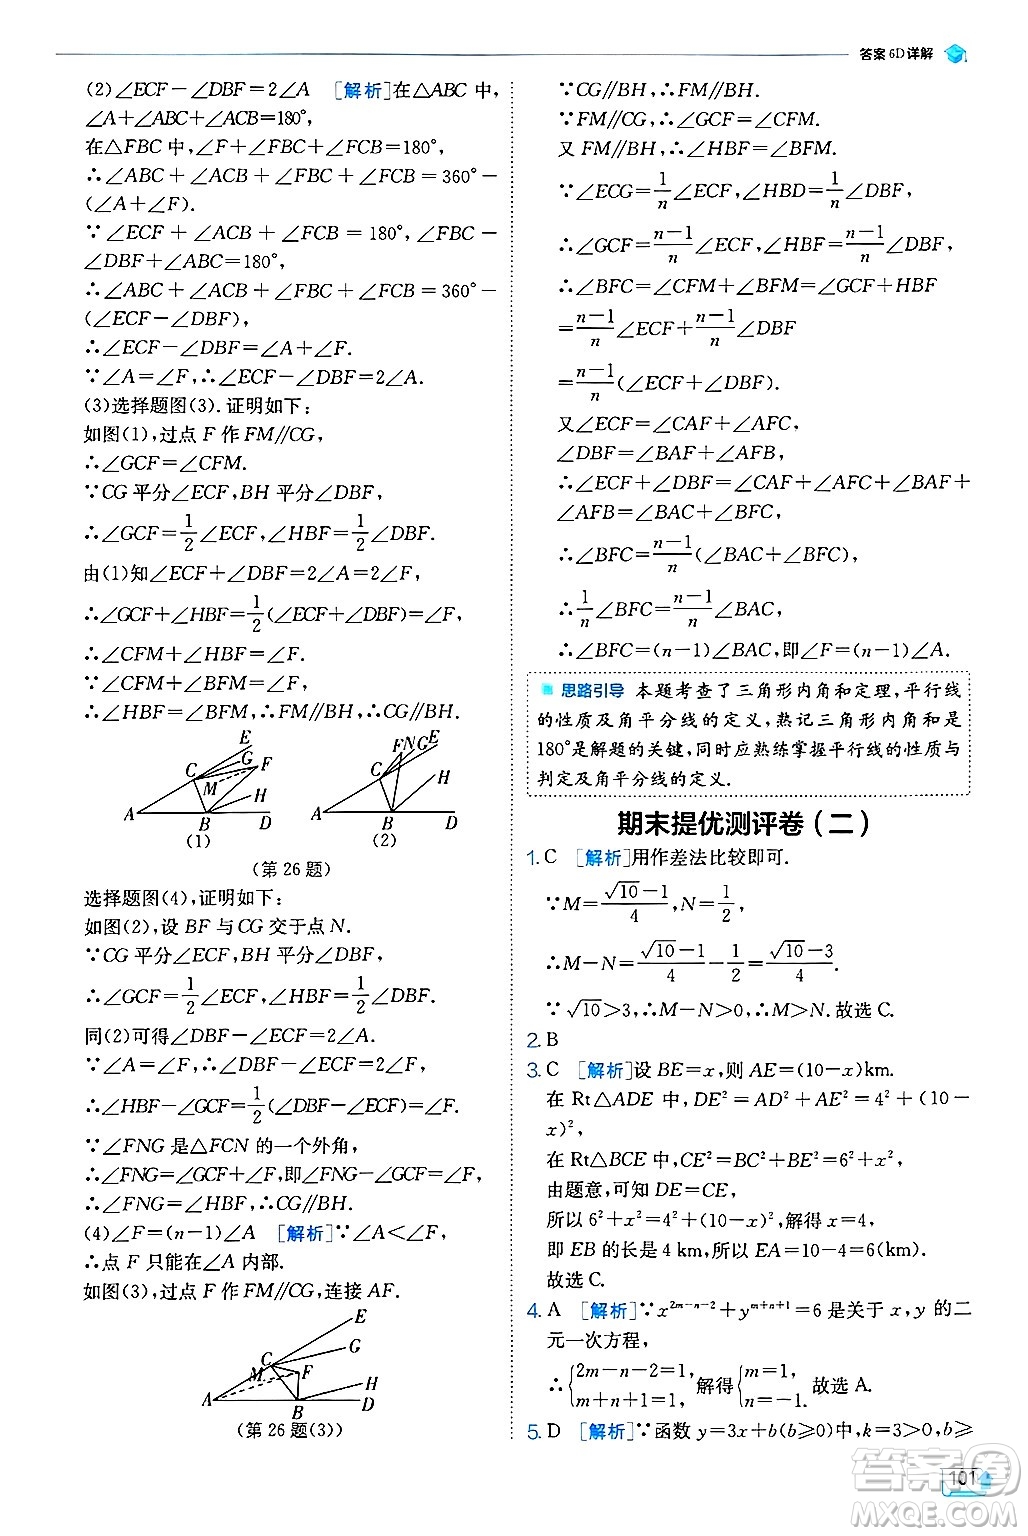 答案 6D详解
(2)∠ECF－∠DBF＝2∠A　[解析]在△ABC 中,
∠A＋∠ABC＋∠ACB＝180°,
在△FBC 中,∠F＋∠FBC＋∠FCB＝180°,
∴∠ABC＋∠ACB＋∠FBC＋∠FCB＝360°－
(∠A＋∠F).
∵∠ECF＋∠ACB＋∠FCB＝180°,∠FBC－
∠DBF＋∠ABC＝180°,
∴∠ABC＋∠ACB＋∠FBC＋∠FCB＝360°－
(∠ECF－∠DBF),
∴∠ECF－∠DBF＝∠A＋∠F.
∵∠A＝∠F,∴∠ECF－∠DBF＝2∠A.
(3)选择题图(3).证明如下:
如图(1),过点 F 作 FM∥CG,
∴∠GCF＝∠CFM.
∵CG 平分∠ECF,BH 平分∠DBF,
∴∠GCF＝1/2∠ECF,∠HBF＝1/2∠DBF.
由(1)知∠ECF＋∠DBF＝2∠A＝2∠F,
∴∠GCF＋∠HBF＝1/2(∠ECF＋∠DBF)＝∠F,
∴∠CFM＋∠HBF＝∠F.
∴∠HBF＝∠BFM,∴FM∥BH,∴CG∥BH.
E
C G F
M H
A B D
(1)
F N G E
C
H
A B D
(2)
(第 26 题)
选择题图(4),证明如下:
如图(2),设 BF 与 CG 交于点 N.
∵CG 平分∠ECF,BH 平分∠DBF,
∴∠GCF＝1/2∠ECF,∠HBF＝1/2∠DBF.
同(2)可得∠DBF－∠ECF＝2∠A.
∵∠A＝∠F,∴∠DBF－∠ECF＝2∠F,
∴∠HBF－∠GCF＝1/2(∠DBF－∠ECF)＝∠F.
∵∠FNG 是△FCN 的一个外角,
∴∠FNG＝∠GCF＋∠F,即∠FNG－∠GCF＝∠F,
∴∠FNG＝∠HBF,∴CG∥BH.
(4)∠F＝(n－1)∠A　[解析]∵∠A＜∠F,
∴点 F 只能在∠A 内部.
如图(3),过点 F 作 FM∥CG,连接 AF.
E
C G
M F
H
A B D
(第 26 题(3))
∵CG∥BH,∴FM∥BH.
∵FM∥CG,∴∠GCF＝∠CFM.
又 FM∥BH,∴∠HBF＝∠BFM.
∵∠ECG＝1/n∠ECF,∠HBD＝1/n∠DBF,
∴∠GCF＝(n－1)/n∠ECF,∠HBF＝(n－1)/n∠DBF,
∴∠BFC＝∠CFM＋∠BFM＝∠GCF＋∠HBF
＝(n－1)/n∠ECF＋(n－1)/n∠DBF
＝(n－1)/n(∠ECF＋∠DBF).
又∠ECF＝∠CAF＋∠AFC,
∠DBF＝∠BAF＋∠AFB,
∴∠ECF＋∠DBF＝∠CAF＋∠AFC＋∠BAF＋
∠AFB＝∠BAC＋∠BFC,
∴∠BFC＝(n－1)/n(∠BAC＋∠BFC),
∴1/n∠BFC＝(n－1)/n∠BAC,
∴∠BFC＝(n－1)∠BAC,即∠F＝(n－1)∠A.
思路引导　本题考查了三角形内角和定理,平行线
的性质及角平分线的定义,熟记三角形内角和是
180°是解题的关键,同时应熟练掌握平行线的性质与
判定及角平分线的定义.
期末提优测评卷(二)
1. C　[解析]用作差法比较即可.
∵M＝(√10－1)/4,N＝1/2,
∴M－N＝(√10－1)/4－1/2＝(√10－3)/4.
∵√10＞3,∴M－N＞0,∴M＞N.故选 C.
2. B
3. C　[解析]设 BE＝x,则 AE＝(10－x)km.
在 Rt△ADE 中,DE²＝AD²＋AE²＝4²＋(10－
x)²,
在 Rt△BCE 中,CE²＝BC²＋BE²＝6²＋x²,
由题意,可知 DE＝CE,
所以 6²＋x²＝4²＋(10－x)²,解得 x＝4,
即 EB 的长是 4 km,所以 EA＝10－4＝6(km).
故选 C.
4. A　[解析]∵x^(2m－n－2)＋y^(m＋n＋1)＝6 是关于 x,y 的二
元一次方程,
∴{2m－n－2＝1, m＋n＋1＝1, 解得{m＝1, n＝－1. 故选 A.
5. D　[解析]∵函数 y＝3x＋b(b≥0)中,k＝3,b≥
101
答案圈
MXQE.COM